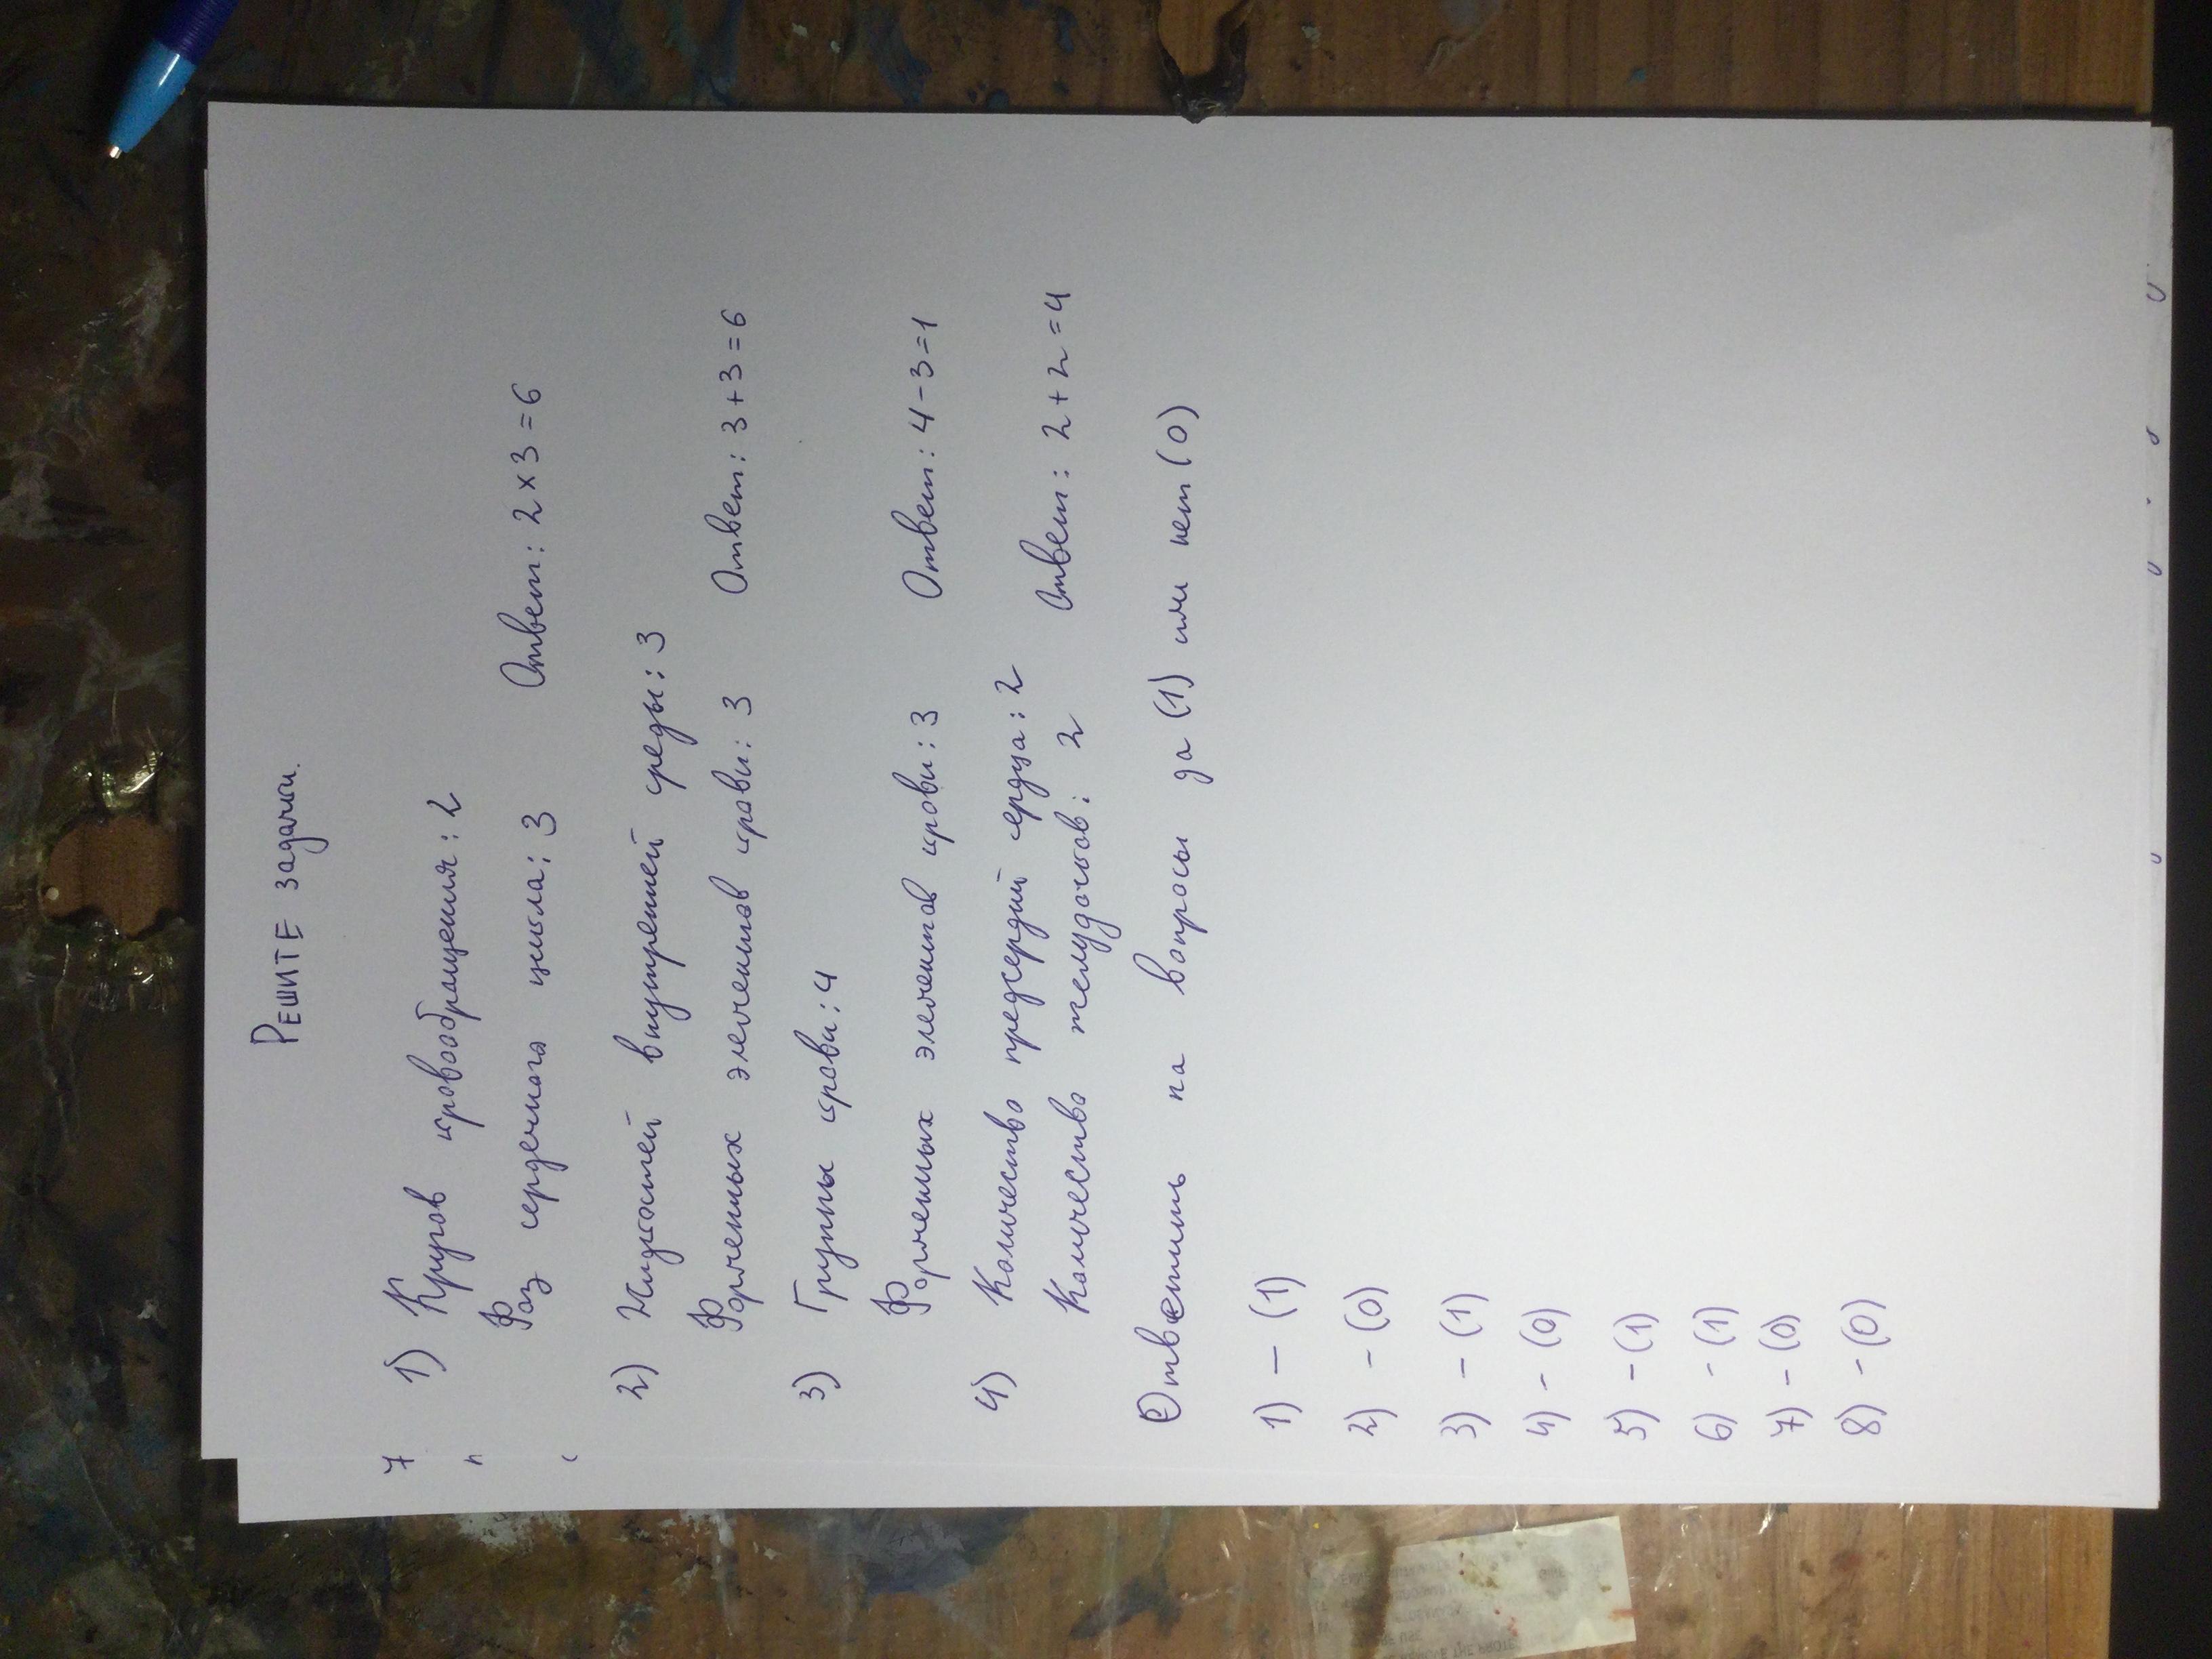 Решите задачи.
1) Кругов кровообращения: 2
Фаз сердечного цикла: 3 Ответ: 2 x 3 = 6
2) Жидкостей внутренней среды: 3
Форменных элементов крови: 3 Ответ: 3 + 3 = 6
3) Группы крови: 4
Форменных элементов крови: 3 Ответ: 4 - 3 = 1
4) Количество предсердий сердца: 2
Количество желудочков: 2 Ответ: 2 + 2 = 4
Ответить на вопросы да (1) или нет (0)
1) — (1)
2) - (0)
3) - (1)
4) - (0)
5) - (1)
6) - (1)
7) - (0)
8) - (0)